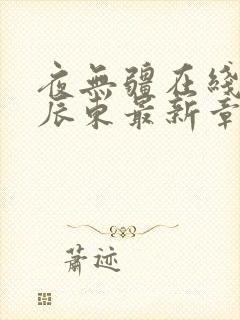 夜無疆在綫
辰東最新章
蕭迹